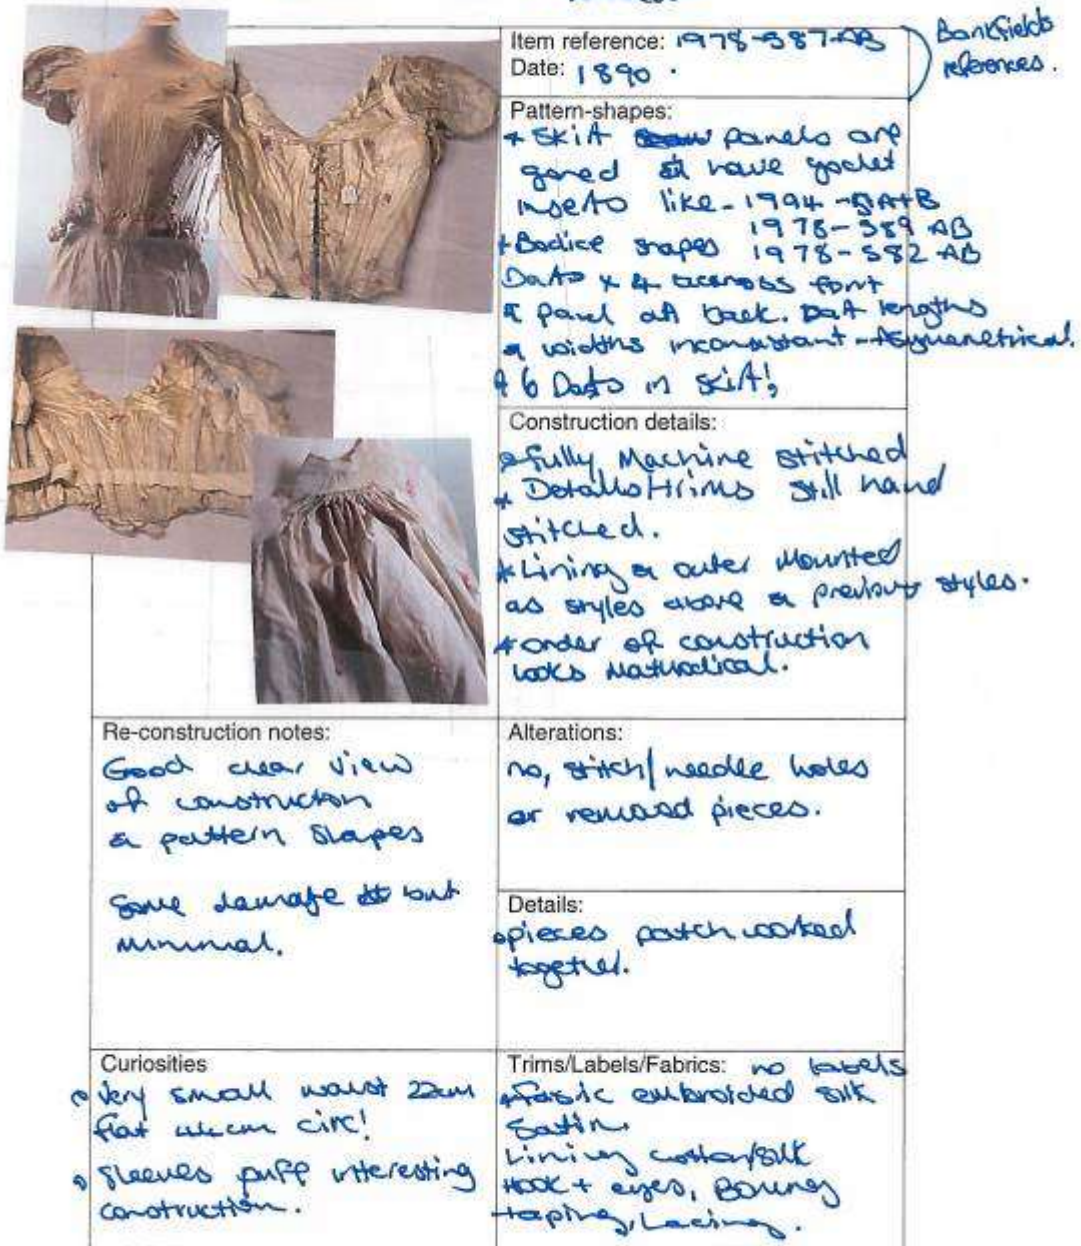 Item reference: 1978-587-AB
Date: 1890.
Bankfields
references.
Pattern-shapes:
* Skirt panels are
gored have godet
inserts like - 1994 - A+B
1978-589 AB
* Bodice shapes 1978-582-AB
Darts x 4 across font
& panel at back. Dart lengths
& widths inconsistant - Asymmetrical.
* 6 Darts in skirt!
Construction details:
* fully Machine stitched
* Details/trims still hand
stitched.
* Lining & outer Mounted
as styles above & previous styles.
* order of construction
looks Mathodical.
Re-construction notes:
Good clear view
of construction
& pattern shapes
Some damage but
minimal.
Alterations:
no, stitch/needle holes
or removed pieces.
Details:
pieces patch worked
together.
Curiosities
Very small waist 22cm
flat 44cm circ!
Sleeves puff interesting
construction.
Trims/Labels/Fabrics: no labels
Fabric embroided silk
Satin.
Lining cotton/silk
Hook + eyes, Boning
taping, Lacing.